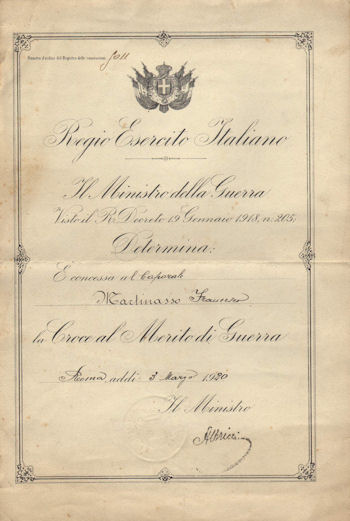 Numero d'ordine del Registro delle concessioni
Regio Esercito Italiano
Il Ministro della Guerra
Visto il R. Decreto 19 Gennaio 1918, n. 205;
Determina:
È concessa al Caporale
Martinasso
la Croce al Merito di Guerra
Roma addì 3 Marzo 1920
Il Ministro